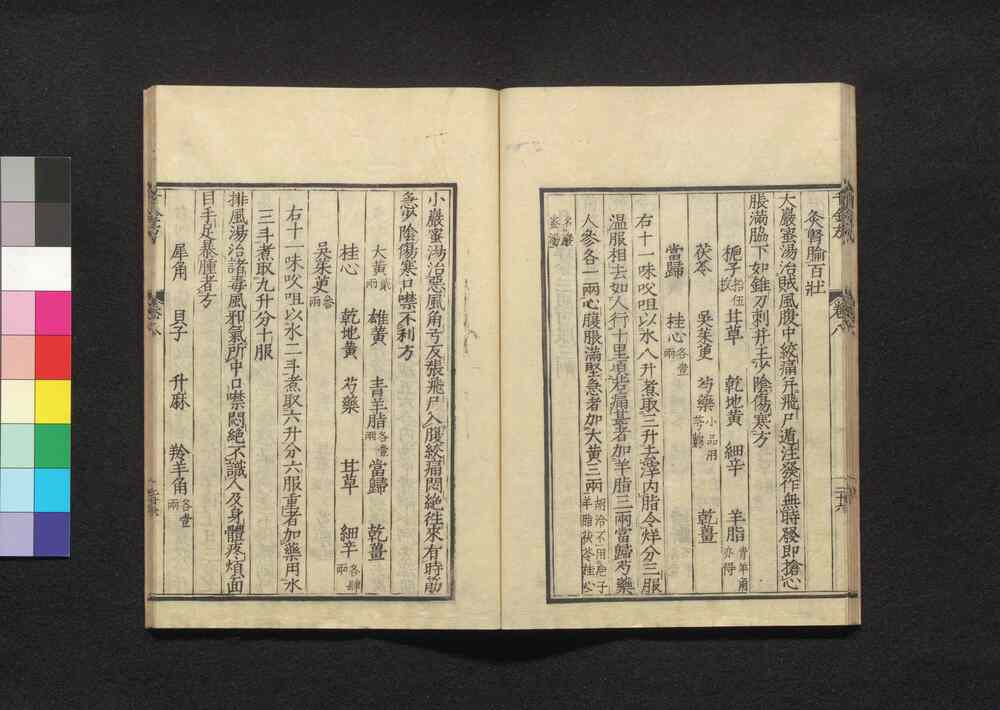 灸腎腧百壯
大巖蜜湯治賊風腹中絞痛并飛尸遁注發作無時發即搶心
脹滿脇下如錐刀刺并主少陰傷寒方
梔子拾伍枚 甘草 乾地黄 細辛 羊脂青羊角亦得
茯苓 吳茱萸 芍藥小品用芎藭 乾薑
當歸 桂心各壹兩
右十一味㕮咀以水八升煮取三升去滓内脂令烊分三服
温服相去如人行十里頃若痛甚者加羊脂三兩當歸芍藥
人參各一兩心腹脹滿堅急者加大黄三兩胡洽不用梔子羊脂茯苓桂心
小巖蜜湯治惡風角弓反張飛尸入腹絞痛悶絶往來有時筋
急少陰傷寒口噤不利方
大黄貳兩 雄黄 青羊脂各壹兩 當歸 乾薑
桂心 乾地黄 芍藥 甘草 細辛各肆兩
吳茱萸參兩
右十一味㕮咀以水二斗煮取六升分六服重者加藥用水
三斗煮取九升分十服
排風湯治諸毒風邪氣所中口噤悶絶不識人及身體疼煩面
目手足暴腫者方
犀角 貝子 升麻 羚羊角各壹兩